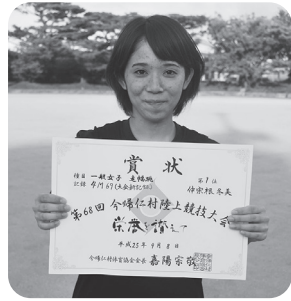 賞状
種目 一般女子 走幅跳 第1位
記録 4m69(大会新記録) 仲宗根 冬美
第68回 今帰仁村陸上競技大会
栄誉を讃えて
平成25年9月8日
今帰仁村体育協会会長 嘉陽宗敬